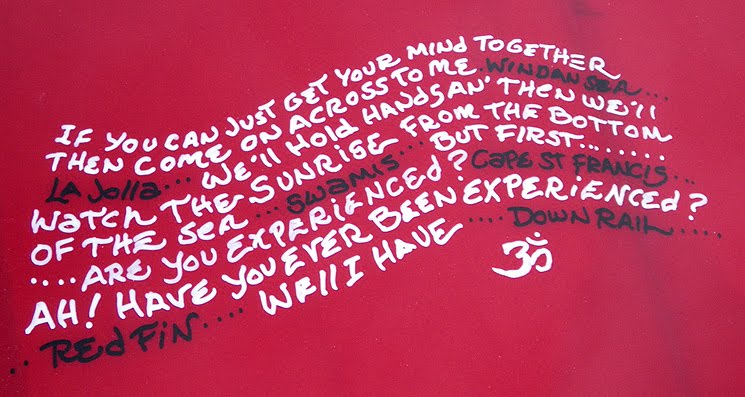 IF YOU CAN JUST GET YOUR MINd TOGETHER
THEN COME ON ACROSS TO ME. WINDANSEA...
LA JOllA... WE'll HOLD HANDS AN' THEN WE'll
WATCH THE SUNRISE FROM THE BOTTOM
OF THE SEA... SWAMIS... BUT FIRST.......
....ARE YOU EXPERIENCEd? CAPE ST FRANCIS...
AH! HAVE YOU EVER BEEN EXPERIENCEd?
..REd FiN.... WEll I HAVE ....DOWN RAIL....
ॐ